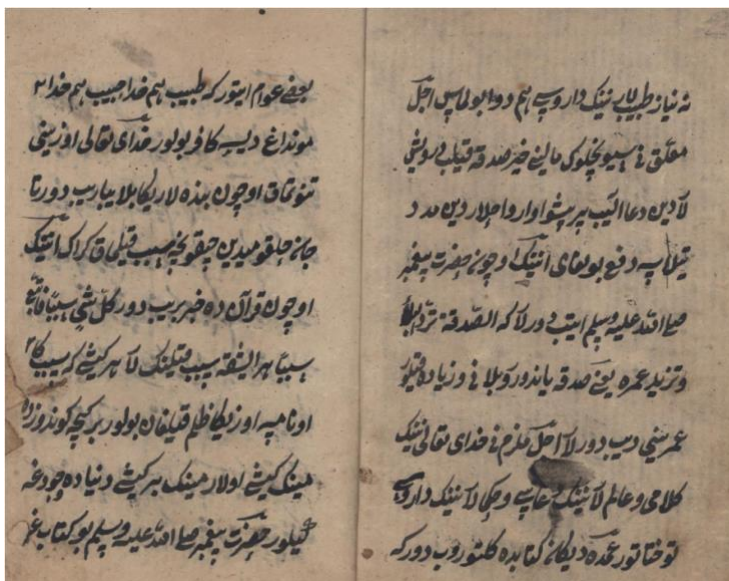 نه نیاز طبیب لار نینک داروسی هم دوا بولماس اجل
معلق نی مالینی خیر صدقه قیلیب درویش
لاردین دعا الیب پیر پیشوا و ارواحلاردین مدد
تیلاپه دفع بولغای انینک اوچون حضرت پیغمبر
صلی الله علیه وسلم ایتیب دورلار که الصدقة ترد البلا
وتزید عمره یعنی صدقه یاندورور بلانی و زیاده قیلور
عمرینی دیب دورلار اجل ملزم نی خدای تعالی نینک
کلامی و عالم لار نینک دعاسی و حکیم لار نینک داروسی
توختاتور عمده دیکان کتابده کلتوروب دورکه
بعضی عوام ایتور که طبیب هم خدا حبیب هم خدا
مونداغ دیسه کافر بولور خدای تعالی اوزینی
تنوتماق اوچون بنده لاریکا بلا یباریب دور تا
جانی حلقومیدین چیقونچه سبب قیلماق کراک انینک
اوچون قرآن ده خبر بریب دور کل شئ سببا فاتبع
سببا هر ایشقه سبب قیلینک لار هر کیشی که سبب کا
اونامسه اوزیکا ظلم قیلغان بولور بر کیچه کوندوزده
مینک کیشی اولار مینک بر کیشی دنیاده وجودغه
کیلور حضرت پیغمبر صلی الله علیه وسلم بو کتاب غه